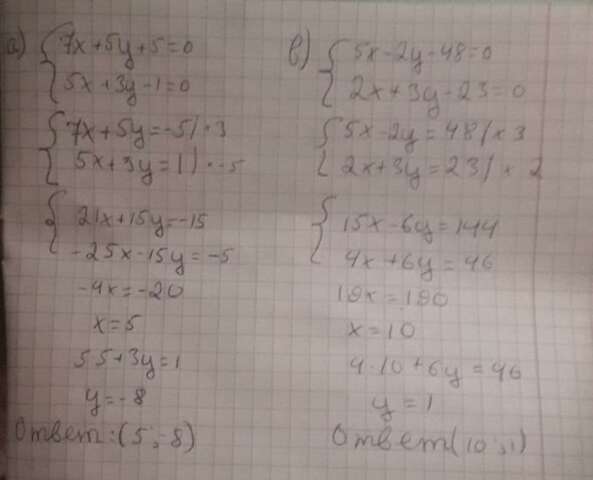 а) { 7x+5y+5=0
5x+3y-1=0
{ 7x+5y=-5|·3
5x+3y=1|·-5
{ 21x+15y=-15
-25x-15y=-5
-4x=-20
x=5
5·5+3y=1
y=-8
Ответ:(5;-8)
в) { 5x-2y-48=0
2x+3y-23=0
{ 5x-2y=48|×3
2x+3y=23|×2
{ 15x-6y=144
4x+6y=46
19x=190
x=10
4·10+6y=46
y=1
Ответ(10;1)